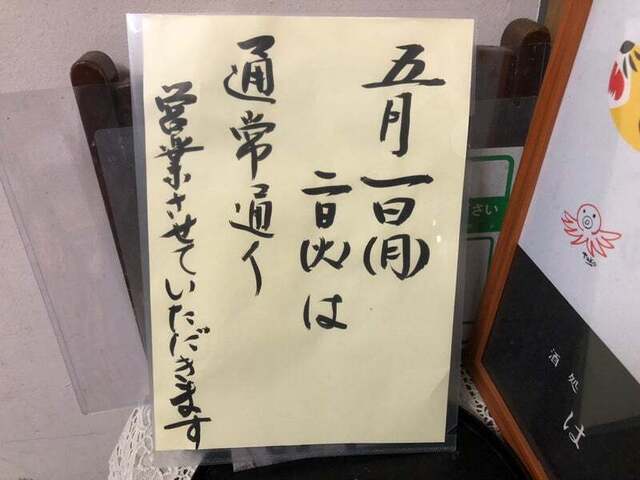 五月一日(月)
二日(火)は
通常通り
営業させていただきます
さい
酒処
は